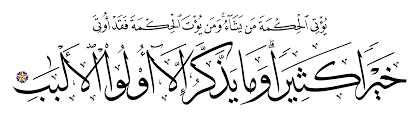 يُؤْتِى الْحِكْمَةَ مَن يَشَآءُ وَمَن يُؤْتَ الْحِكْمَةَ فَقَدْ أُوتِىَ
خَيْرًا كَثِيرًا وَمَا يَذَّكَّرُ إِلَّآ أُو۟لُوا۟ الْأَلْبَٰبِ